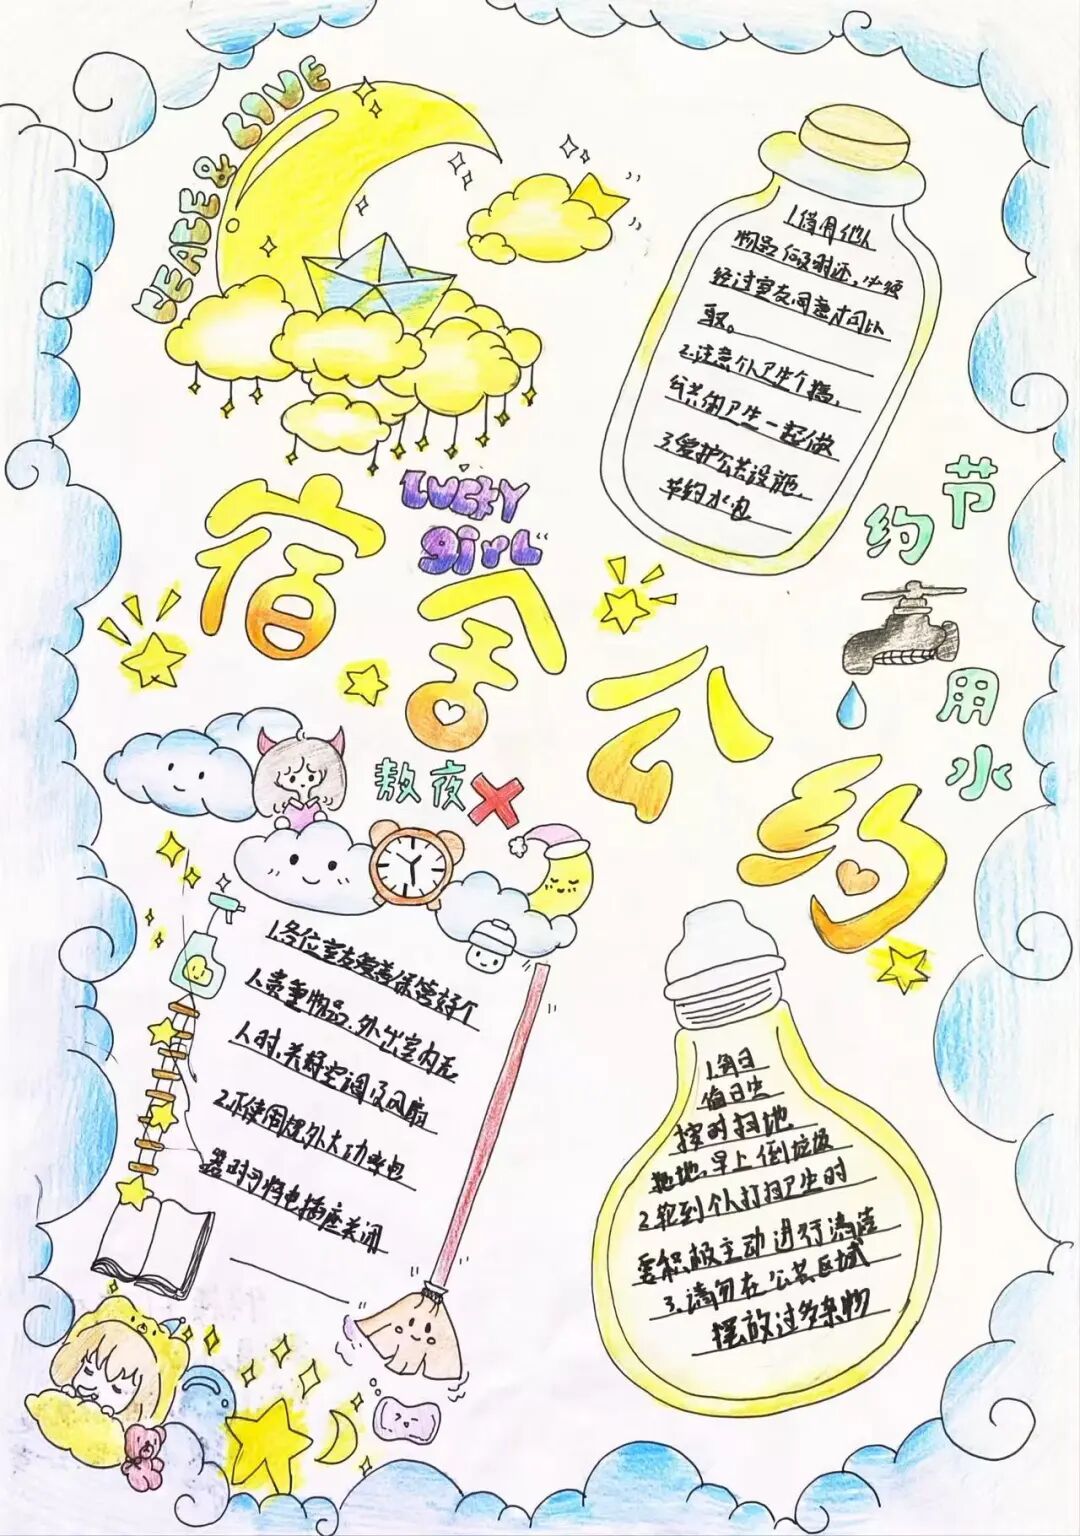 PEACE & LOVE
1.借用他人
物品,及时还,必须
经过室友同意才可以
取。
2.注意个人卫生个搞,
公共间卫生一起做
3.爱护公共设施、
节约水电
节约
用水
宿舍公约
Lucky
girl
熬夜
1.各位室友妥善保管好个
人贵重物品.外出室内无
人时,关好空调及风扇
2.不使用 大功率电
器时 将电插座关闭
1.每日
值日生
按时扫地
拖地,早上倒垃圾
2.轮到个人打扫卫生时
要积极主动进行清洁
3.请勿在公共区域
摆放过多杂物